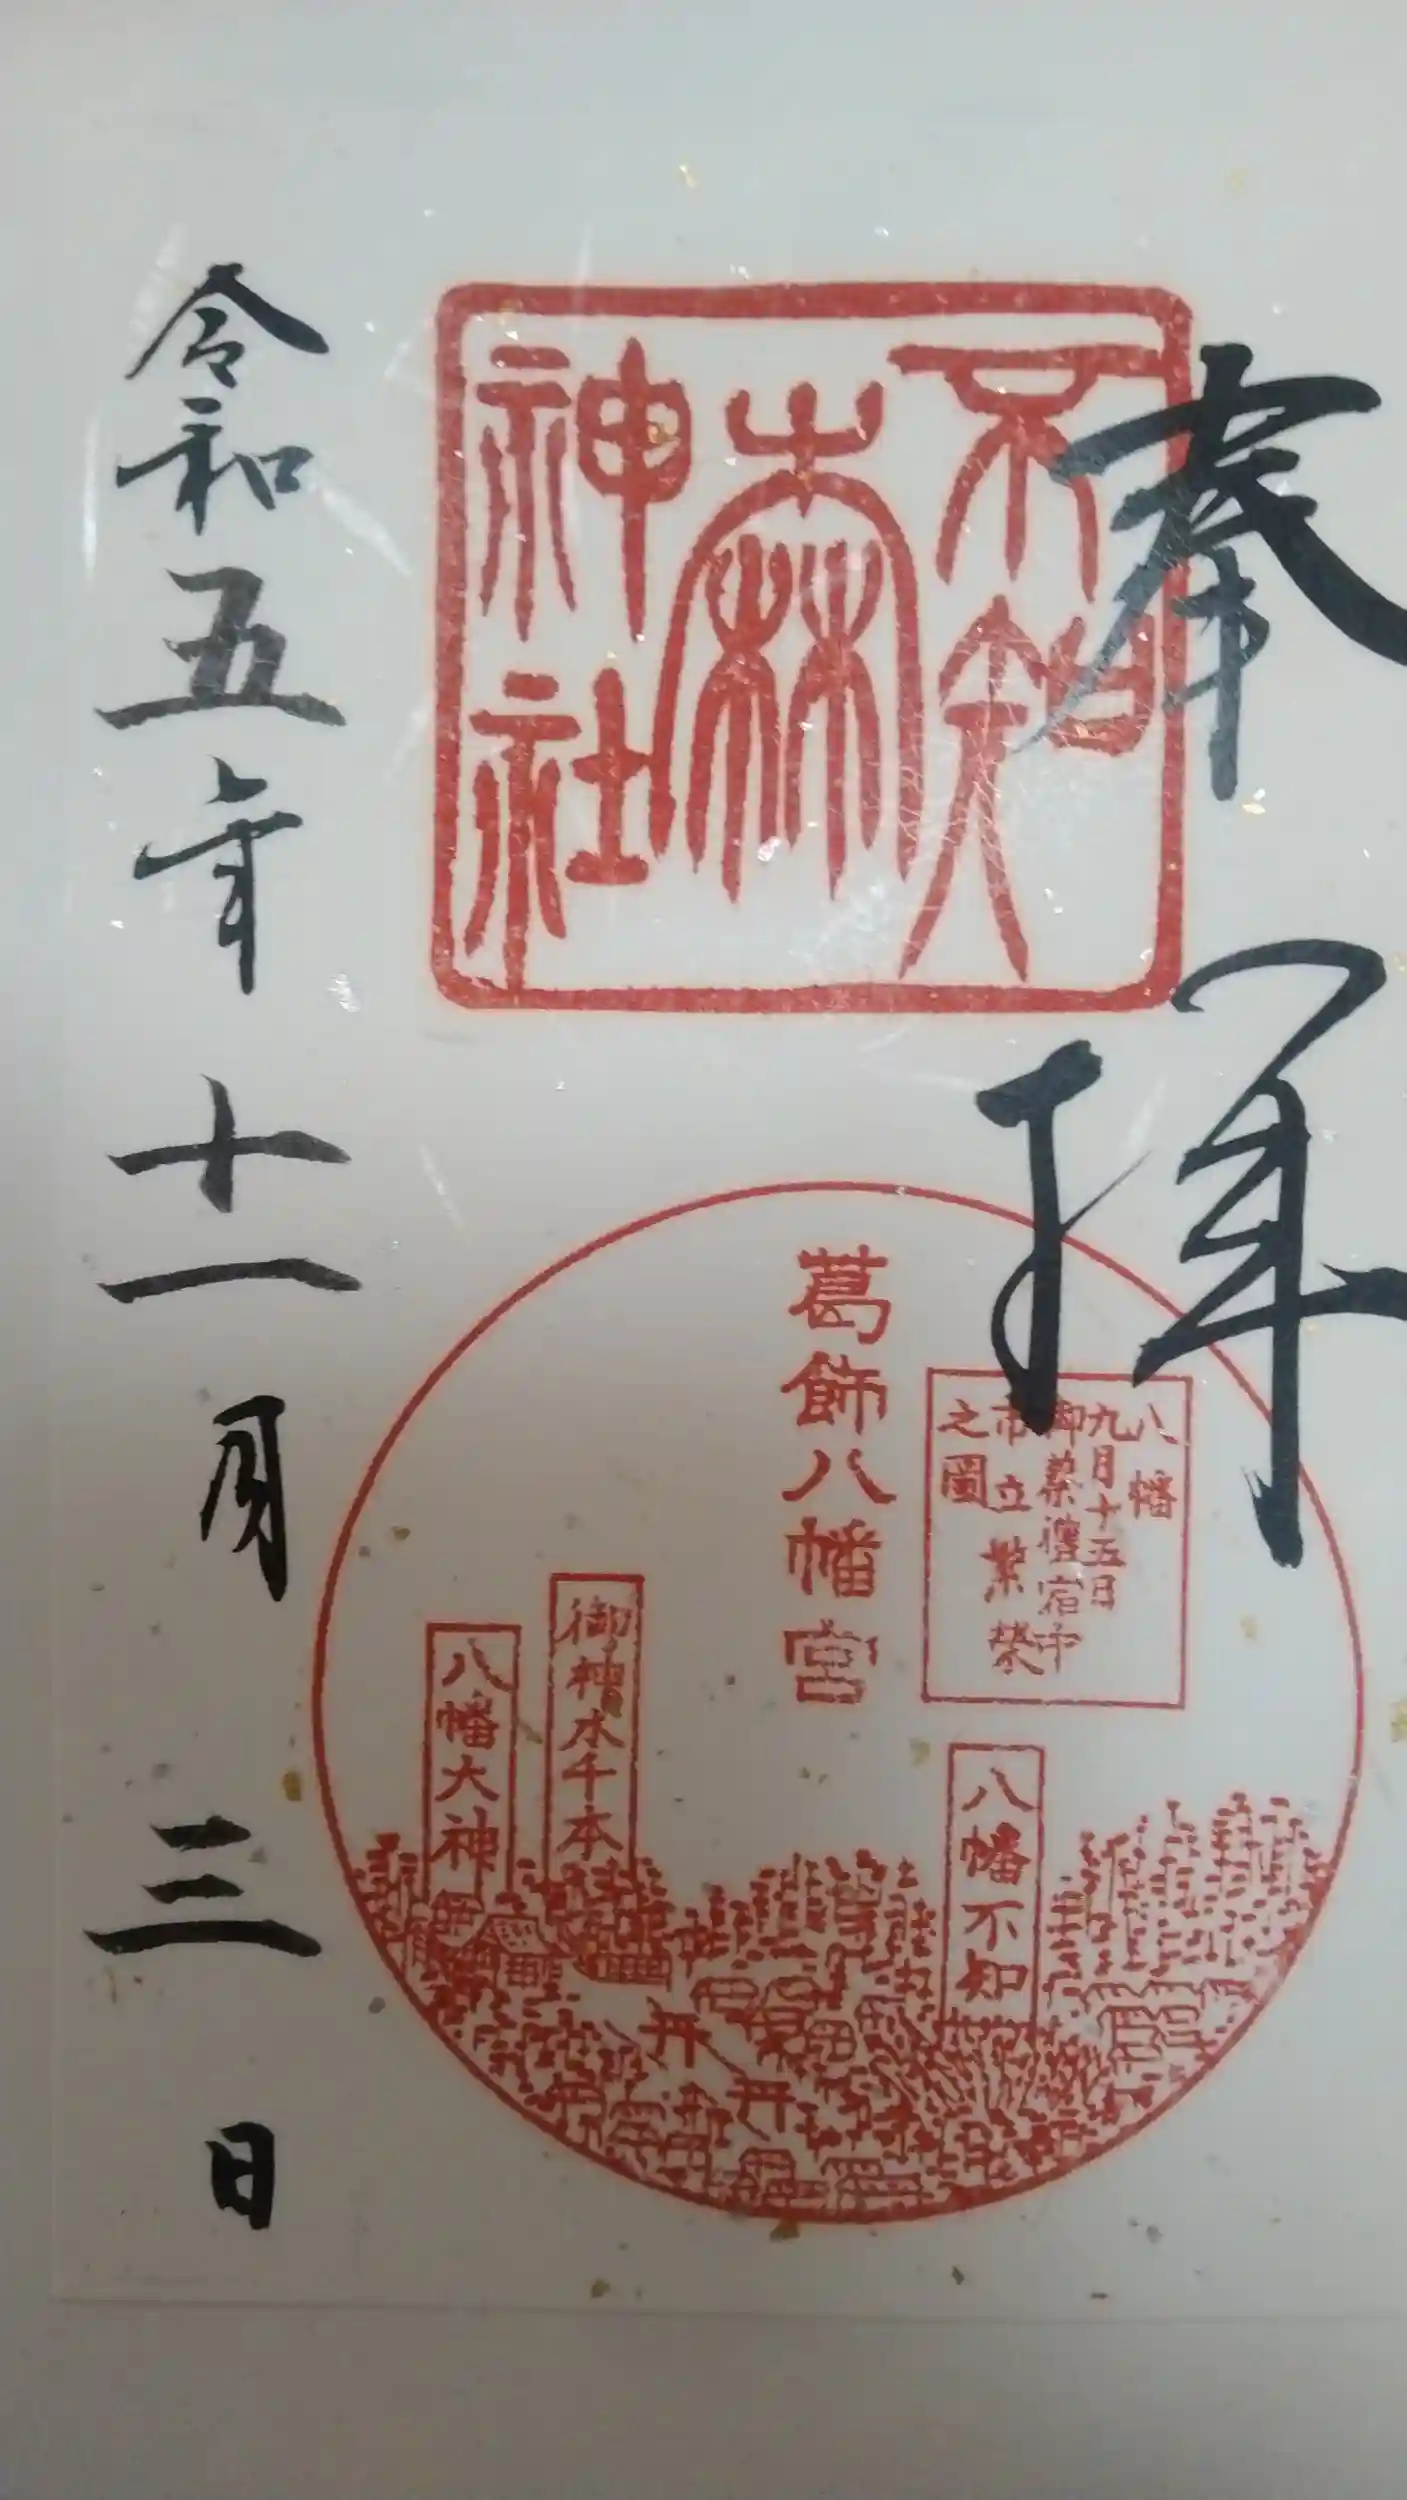 奉拝
不知
森
神社
葛飾八幡宮
八幡
九月十五日
御祭禮宿中
市立繁榮
之圖
八幡不知
御神木千本
八幡大神
令和五年十一月三日